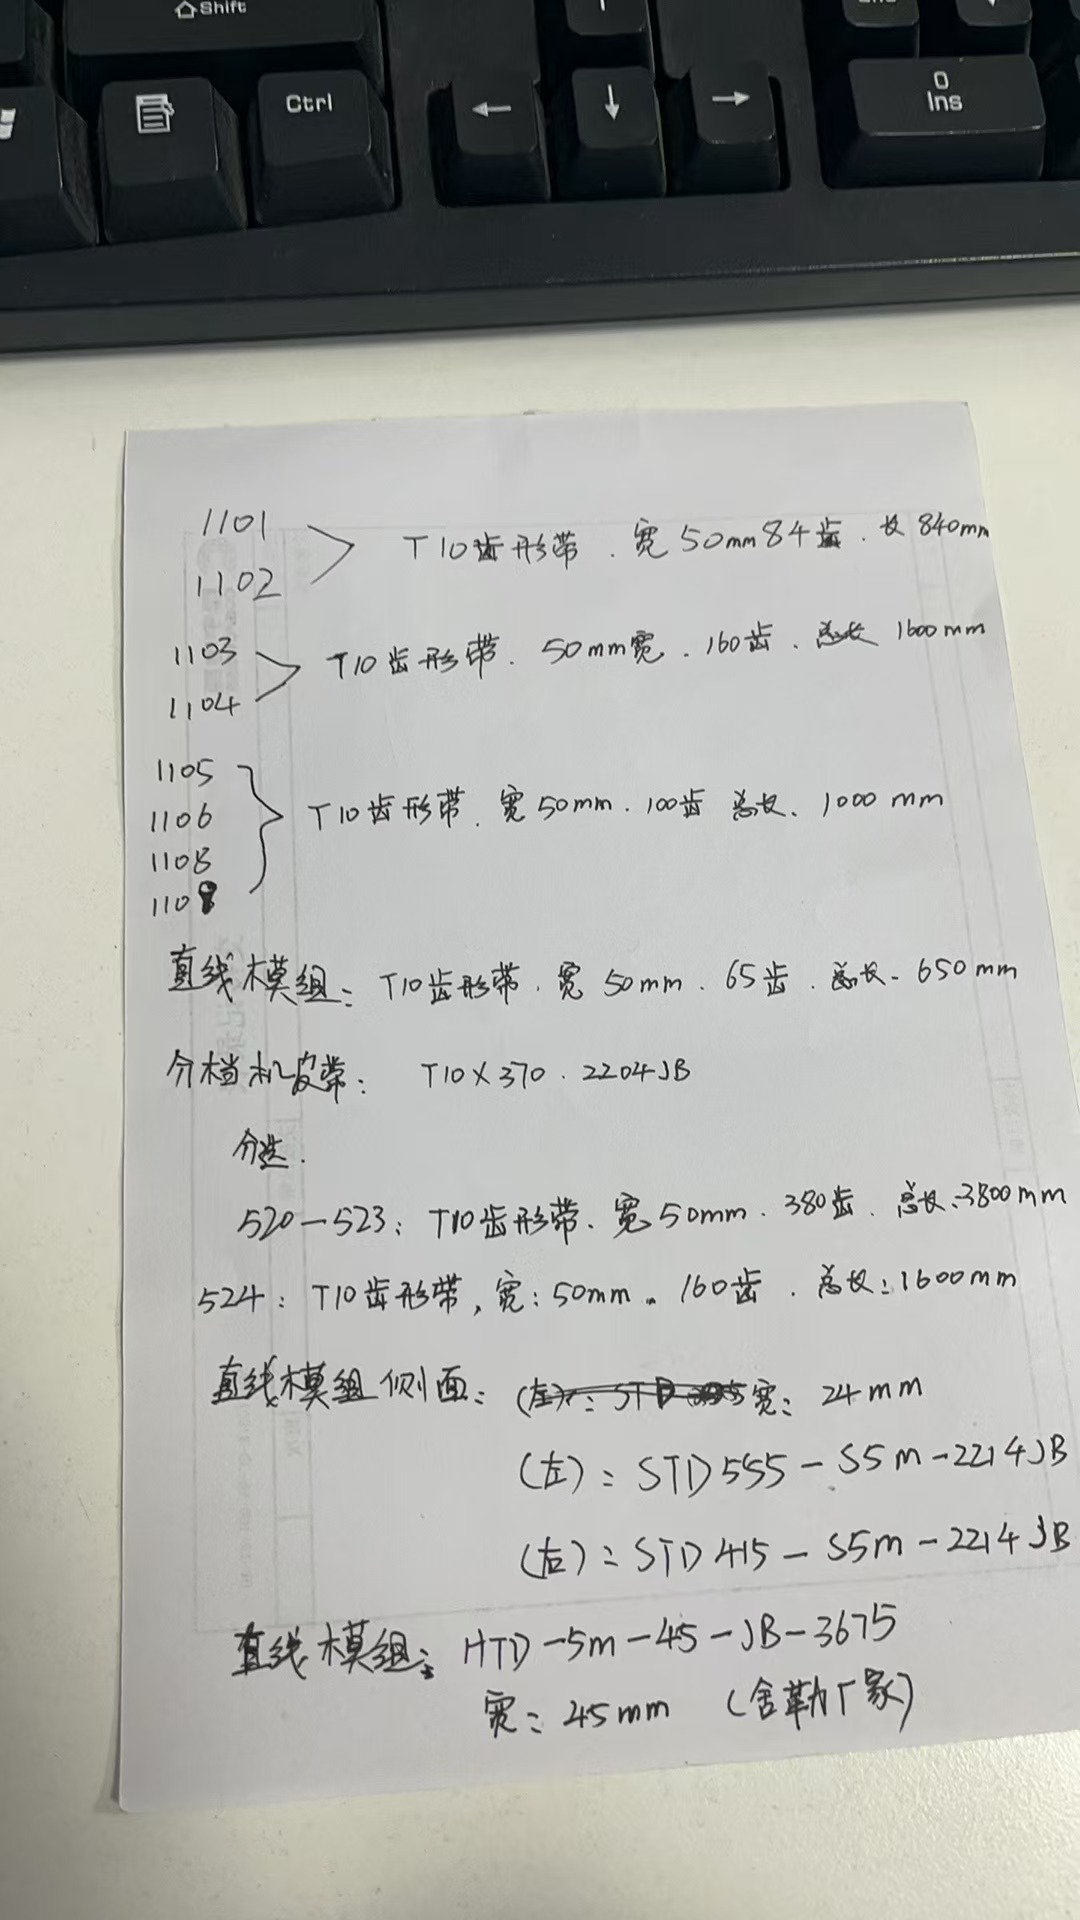 Shift
Ctrl
←
↓
→
0
Ins
1101
1102
T10齿形带.宽50mm84齿.长840mm
1103
1104
T10齿形带.50mm宽.160齿.总长1600mm
1105
1106
1108
1108
T10齿形带.宽50mm.100齿 总长.1000mm
直线模组:T10齿形带.宽50mm.65齿.总长.650mm
分档机皮带:T10×370.2204JB
分选.
520-523:T10齿形带.宽50mm.380齿.总长:3800mm
524:T10齿形带,宽:50mm.160齿.总长:1600mm
直线模组侧面:(左):STD 宽:24mm
(左):STD555-S5m-2214JB
(右):STD415-S5m-2214JB
直线模组:HTD-5m-45-JB-3675
宽:45mm (舍勒厂家)